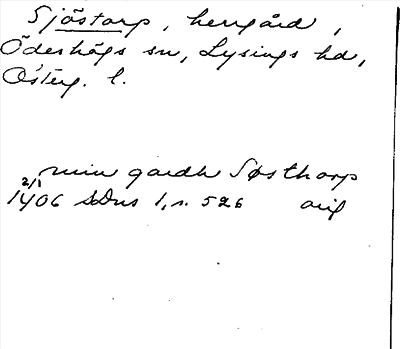 Sjöstorp, herrgård,
Ödeshögs sn, Lysings hd,
Österg. l.
min gardh Søsthorp
2/1
1406 SDns 1, s. 526 orig